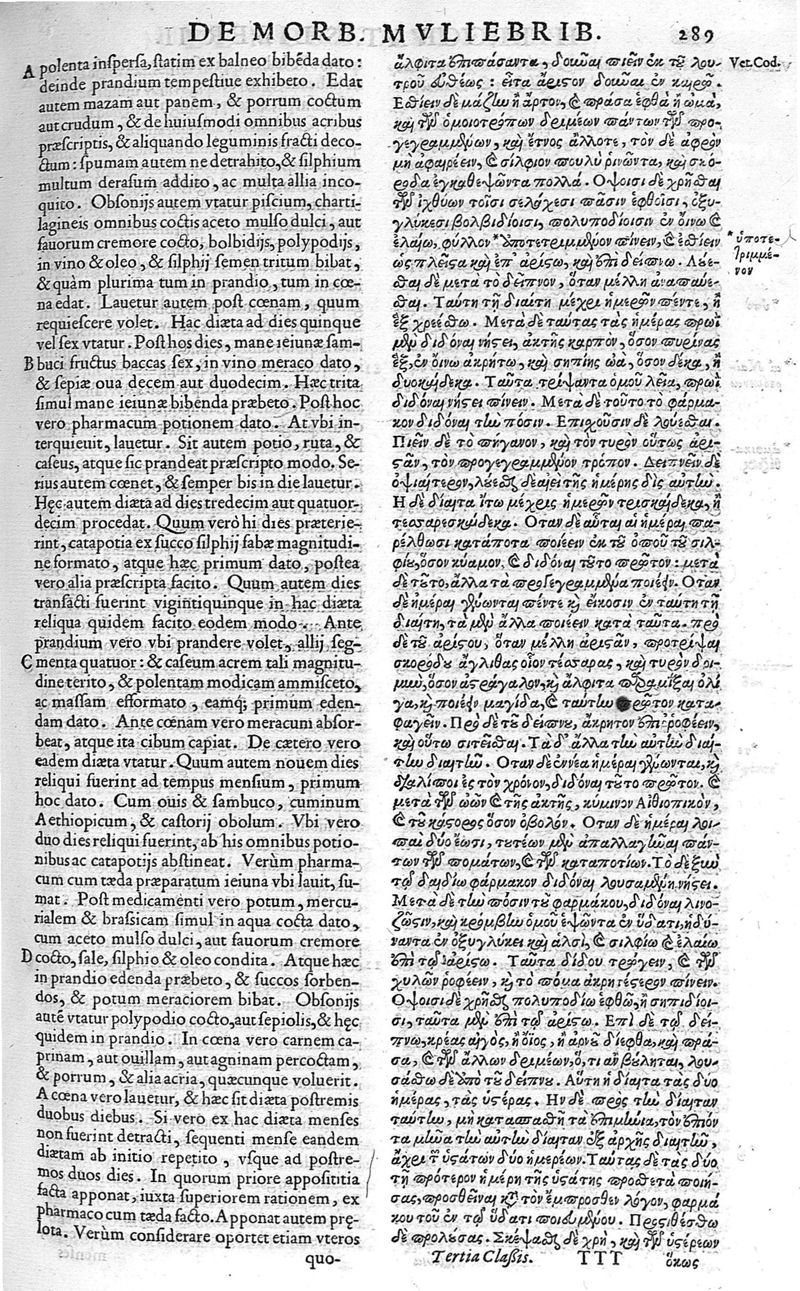 DE MORB. MVLIEBRIB. 289
A polenta inspersa, statim ex balneo bibēda dato:
deinde prandium tempestiue exhibeto. Edat
autem mazam aut panem, & porrum coctum
aut crudum, & de huiusmodi omnibus acribus
præscriptis, & aliquando leguminis fracti deco-
ctum: spumam autem ne detrahito, & silphium
multum derasum addito, ac multa allia inco-
quito. Obsonijs autem vtatur piscium, charti-
lagineis omnibus coctis aceto mulso dulci, aut
fauorum cremore cocto, bolbidijs, polypodijs,
in vino & oleo, & silphij semen tritum bibat,
& quàm plurima tum in prandio, tum in cœ-
na edat. Lauetur autem post cœnam, quum
requiescere volet. Hac diæta ad dies quinque
vel sex vtatur. Post hos dies, mane ieiunæ sam-
B buci fructus baccas sex, in vino meraco dato,
& sepiæ oua decem aut duodecim. Hæc trita
simul mane ieiunæ bibenda præbeto. Post hoc
vero pharmacum potionem dato. At vbi in-
terquieuit, lauetur. Sit autem potio, ruta, &
caseus, atque sic prandeat præscripto modo. Se-
rius autem cœnet, & semper bis in die lauetur.
Hęc autem diæta ad dies tredecim aut quatuor-
decim procedat. Quum verò hi dies præterie-
rint, catapotia ex succo silphij fabæ magnitudi-
ne formato, atque hæc primum dato, postea
vero alia præscripta facito. Quum autem dies
transacti fuerint vigintiquinque in hac diæta
reliqua quidem facito eodem modo. Ante
prandium vero vbi prandere volet, allij seg-
C menta quatuor: & caseum acrem tali magnitu-
dine terito, & polentam modicam ammisceto,
ac massam efformato, eamq; primum eden-
dam dato. Ante cœnam vero meracuni absor-
beat, atque ita cibum capiat. De cætero vero
eadem diæta vtatur. Quum autem nouem dies
reliqui fuerint ad tempus mensium, primum
hoc dato. Cum ouis & sambuco, cuminum
Aethiopicum, & castorij obolum. Vbi vero
duo dies reliqui fuerint, ab his omnibus potio-
nibus ac catapotijs abstineat. Verùm pharma-
cum cum tæda præparatum ieiuna vbi lauit, su-
mat. Post medicamenti vero potum, mercu-
rialem & brassicam simul in aqua cocta dato,
cum aceto mulso dulci, aut fauorum cremore
D cocto, sale, silphio & oleo condita. Atque hæc
in prandio edenda præbeto, & succos sorben-
dos, & potum meraciorem bibat. Obsonijs
autē vtatur polypodio cocto, aut sepiolis, & hęc
quidem in prandio. In cœna vero carnem ca-
prinam, aut ouillam, aut agninam percoctam,
& porrum, & alia acria, quæcunque voluerit.
A cœna vero lauetur, & hæc sit diæta postremis
duobus diebus. Si vero ex hac diæta menses
non fuerint detracti, sequenti mense eandem
diætam ab initio repetito, vsque ad postre-
mos duos dies. In quorum priore appositia
facta apponat, iuxta superiorem rationem, ex
pharmaco cum tæda facto. Apponat autem pρę-
lota. Verùm considerare oportet etiam vteros
quo-
ἄλφιτα ἐπιπάσαντα, δοῦναι πιεῖν ἐκ τοῦ λου-
τροῦ εὐθέως: εἶτα ἄριστον δοῦναι ἐν καιρῷ.
Εσθίειν δὲ μάζαν ἢ ἄρτον, καὶ πράσα ἑφθὰ ἢ ὠμὰ,
καὶ τῶν ὁμοιοτρόπων δριμέων πάντων τῶν προ-
γεγραμμένων, καὶ ἔτνος ἄλλοτε, τὸν δὲ ἀφρὸν
μὴ ἀφαιρέειν, καὶ σίλφιον πουλὺ ῥινῶντα, καὶ σκό-
ροδα ἐγκαθεψῶντα πολλά. Οψοισι δὲ χρῆσθαι
τῶν ἰχθύων τοῖσι σελάχεσι πᾶσιν ἑφθοῖσι, ὀξυ-
γλύκεσι βολβιδίοισι, πολυποδίοισιν ἐν οἴνῳ καὶ
ἐλαίῳ, φύλλον *ὑποτετριμμένον πίνειν, καὶ ἐσθίειν
ὡς πλεῖστα καὶ ἐπ' ἀρίστῳ, καὶ ἐπὶ δείπνῳ. Λούε-
σθαι δὲ μετὰ τὸ δεῖπνον, ὅταν μέλλῃ ἀναπαύε-
σθαι. Ταύτῃ τῇ διαίτῃ μέχρι ἡμερῶν πέντε, ἢ
ἓξ χρεέσθω. Μετὰ δὲ ταύτας τὰς ἡμέρας πρωῒ
μὲν διδόναι νήστει, ἀκτῆς καρπὸν, ὅσον πυρῖνας
ἓξ, ἐν οἴνῳ ἀκρήτῳ, καὶ σηπίης ὠὰ, ὅσον δέκα, ἢ
δυοκαίδεκα. Ταῦτα τρίψαντα ὁμοῦ λεῖα, πρωῒ
διδόναι νήστει πίνειν. Μετὰ δὲ τοῦτο τὸ φάρμα-
κον διδόναι τὴν πόσιν. Επισχοῦσιν δὲ λούεσθαι.
Πιεῖν δὲ τὸ πήγανον, καὶ τὸν τυρὸν οὕτως ἀρι-
στᾶν, τὸν προγεγραμμένον τρόπον. Δειπνεῖν δὲ
ὀψιαίτερον, λούεσθαι δὲ αἰεὶ τῆς ἡμέρης δὶς αὐτήν.
Η δὲ δίαιτα ἴτω μέχρις ἡμερῶν τρισκαίδεκα, ἢ
τεσσαρεσκαίδεκα. Οταν δὲ αὗται αἱ ἡμέραι πα-
ρέλθωσι κατάποτα ποιέειν ἐκ τοῦ ὀποῦ τοῦ σιλ-
φίου, ὅσον κύαμον, καὶ διδόναι τοῦτο πρῶτον: μετὰ
δὲ τοῦτο, ἄλλα τὰ προσγεγραμμένα ποιέειν. Οταν
δὲ ἡμέραι γένωνται πέντε καὶ εἴκοσιν ἐν ταύτῃ τῇ
διαίτῃ, τὰ μὲν ἄλλα ποιέειν κατὰ ταῦτα. πρὸ
δὲ τοῦ ἀρίστου, ὅταν μέλλῃ ἀριστᾶν, προτρίψαι
σκορόδου ἀγλῖθας οἷον τέσσαρας, καὶ τυρὸν δρι-
μὺν, ὅσον ἀστράγαλον, καὶ ἄλφιτα παραμίξαι ὀλί
γα, καὶ ποιέειν μαγίδα, καὶ ταύτην πρῶτον κατα-
φαγεῖν. Πρὸ δὲ τοῦ δείπνου, ἄκρητον ἐπιρροφέειν,
καὶ οὕτω σιτεῖσθαι. Τὰ δ' ἄλλα τὴν αὐτὴν δίαι-
τὴν διαιτῆν. Οταν δὲ ἐννέα ἡμέραι γένωνται, καὶ
διαλίποι ἐς τὸν χρόνον, διδόναι τοῦτο πρῶτον. καὶ
μετὰ τῶν ὠῶν καὶ τῆς ἀκτῆς, κύμινον Αἰθιοπικὸν,
καὶ τοῦ κάστορος ὅσον ὀβολόν. Οταν δὲ ἡμέραι λοι-
παὶ δύο ἔωσι, τουτέων μὲν ἀπαλλαγῆναι πάν-
των τῶν πομάτων, καὶ τῶν καταποτίων. Τὸ δὲ ξὺν
τῷ δαιδίῳ φάρμακον διδόναι λουσαμένῃ νήστει.
Μετὰ δὲ τὴν πόσιν τοῦ φαρμάκου, διδόναι λινο-
ζῶστιν, καὶ κράμβην ὁμοῦ ἑψῶντα ἐν ὕδατι, ἡδύ-
ναντα ἐν ὀξυγλύκει καὶ ἁλσὶ, καὶ σιλφίῳ καὶ ἐλαίῳ
ἐπὶ τῷ ἀρίστῳ. Ταῦτα δίδου τρώγειν, καὶ τῶν
χυλῶν ῥοφέειν, καὶ τὸ πόμα ἀκρητέστερον πίνειν.
Οψοισι δὲ χρῆσθαι πολυποδίῳ ἑφθῷ, ἢ σηπιδίοι-
σι, ταῦτα μὲν ἐπὶ τῷ ἀρίστῳ. Επὶ δὲ τῷ δεί-
πνῳ, κρέας αἰγὸς, ἢ ὄϊος, ἢ ἀρνοῦ δίεφθα, καὶ πρά-
σα, καὶ τῶν ἄλλων δριμέων, ὅ, τι ἂν βούληται, λου-
σάσθω δὲ ἀπὸ τοῦ δείπνου. Αὕτη ἡ δίαιτα τὰς δύο
ἡμέρας, τὰς ὑστέρας. Ην δὲ πρὸς τὴν δίαιταν
ταύτην, μὴ κατασπασθῇ τὰ ἐπιμήνια, τὸν ἐπιόν
τα μῆνα τὴν αὐτὴν δίαιταν ἐξ ἀρχῆς διαιτῆν,
ἄχρι τῶν ὑστάτων δύο ἡμερέων. Ταύτας δὲ τὰς δύο
τῇ πρότερον ἡμέρῃ τῆς ὑστάτης προσθετὰ ποιή-
σας, προσθεῖναι κατὰ τὸν ἔμπροσθεν λόγον, φαρμά
κου τοῦ ἐν τῷ ὕδατι ποιευμένου. Προστιθέσθω
δὲ προλούσας. Σκέψασθαι δὲ χρὴ, καὶ τῶν ὑστερέων
Tertia Classis. TTT ὅκως
Vet. Cod.
*ὑποτε-
τριμμέ-
νον